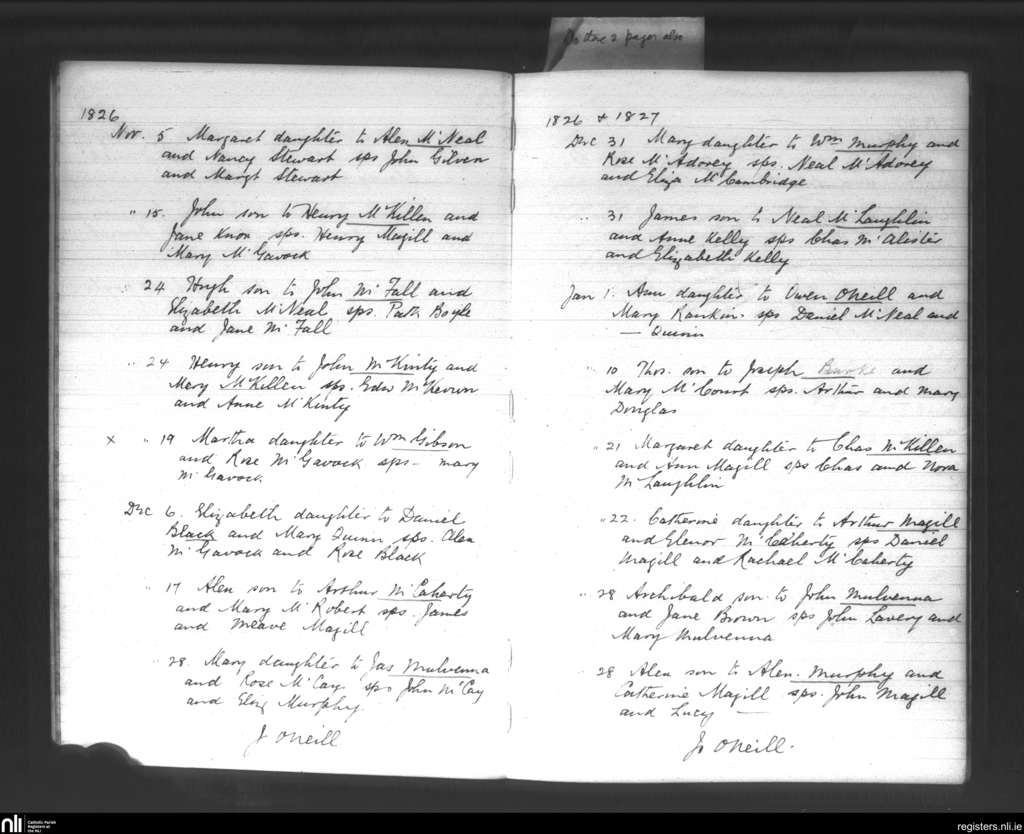 Do these 2 pages also
1826
Nov. 5 Margaret daughter to Alen McNeal
and Nancy Stewart sps John Gilven
and Margt Stewart
" 15. John son to Henry McKillen and
Jane Knox sps. Henry Magill and
Mary McGavock
" 24 Hugh son to John McFall and
Elizabeth McNeal sps. Patk Boyle
and Jane McFall
" 24 Henry son to John McKinty and
Mary McKillen sps. Edw McKeown
and Anne McKinty
x " 19 Martha daughter to Wm Gibson
and Rose McGavock sps - Mary
McGavock
Dec 6. Elizabeth daughter to Daniel
Black and Mary Quinn sps. Alen
McGavock and Rose Black
" 17 Alen son to Arthur McCaherty
and Mary McRobert sps. James
and Meave Magill
" 28. Mary daughter to Jas Mulvenna
and Rose McCay sps John McCay
and Eliz Murphy.
J ONeill
1826 + 1827
Dec 31 Mary daughter to Wm Murphy and
Rose McAdorey sps. Neal McAdorey
and Eliza McCambridge
" 31 James son to Neal McLaughlin
and Anne Kelly sps Chas McAlister
and Elizabeth Kelly
Jan 1. Ann daughter to Owen ONeill and
Mary Rankin sps Daniel McNeal and
— Quinn
" 10 Thos. son to Joseph Bourke and
Mary McCourt sps. Arthur and Mary
Douglas
" 21 Margaret daughter to Chas McKillen
and Ann Magill sps Chas and Nora
McLaughlin
" 22. Catherine daughter to Arthur Magill
and Elenor McCaherty sps Daniel
Magill and Rachael McCaherty
" 28 Archibald son to John Mulvenna
and Jane Brown sps John Lavery and
Mary Mulvenna
" 28 Alen son to Alen. Murphy and
Catherine Magill sps. John Magill
and Lucy —
Js ONeill.
nli Catholic Parish
Registers at
the NLI
registers.nli.ie